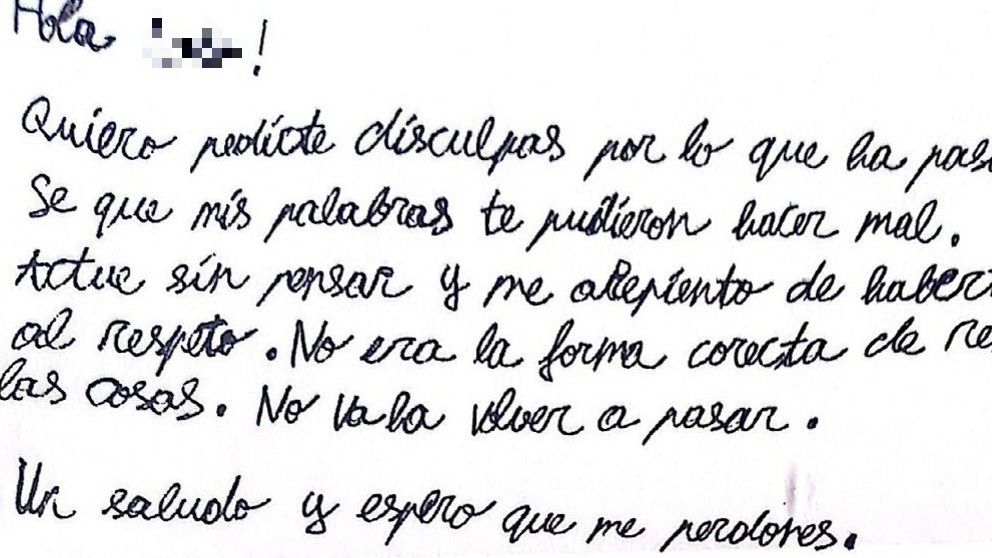 Hola !
Quiero pedirte disculpas por lo que ha pas
Se que mis palabras te pudieron hacer mal.
Actue sin pensar y me arepiento de habert
al respeto. No era la forma corecta de re
las cosas. No va ha volver a pasar.
Un saludo y espero que me perdones.